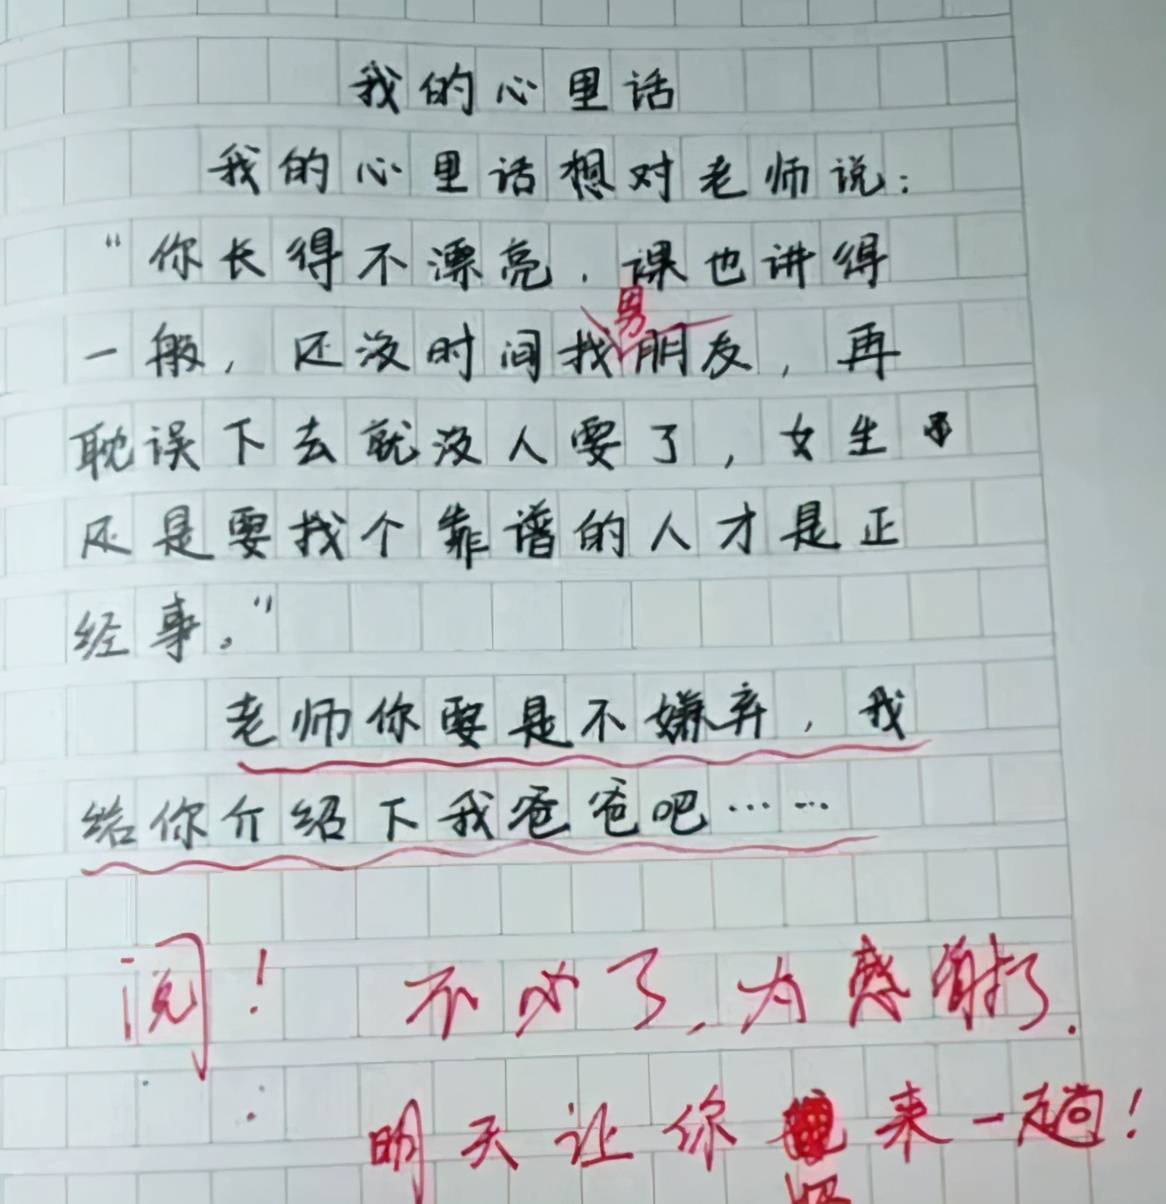 我的心里话
我的心里话想对老师说：
“你长得不漂亮，课也讲得
一般，还没时间找男朋友，再
耽误下去就没人要了，女生
还是要找个靠谱的人才是正
经事。”
老师你要是不嫌弃，我
给你介绍下我爸爸吧……
阅！ 不必了，太感谢了.
明天让你 来一趟！
妈